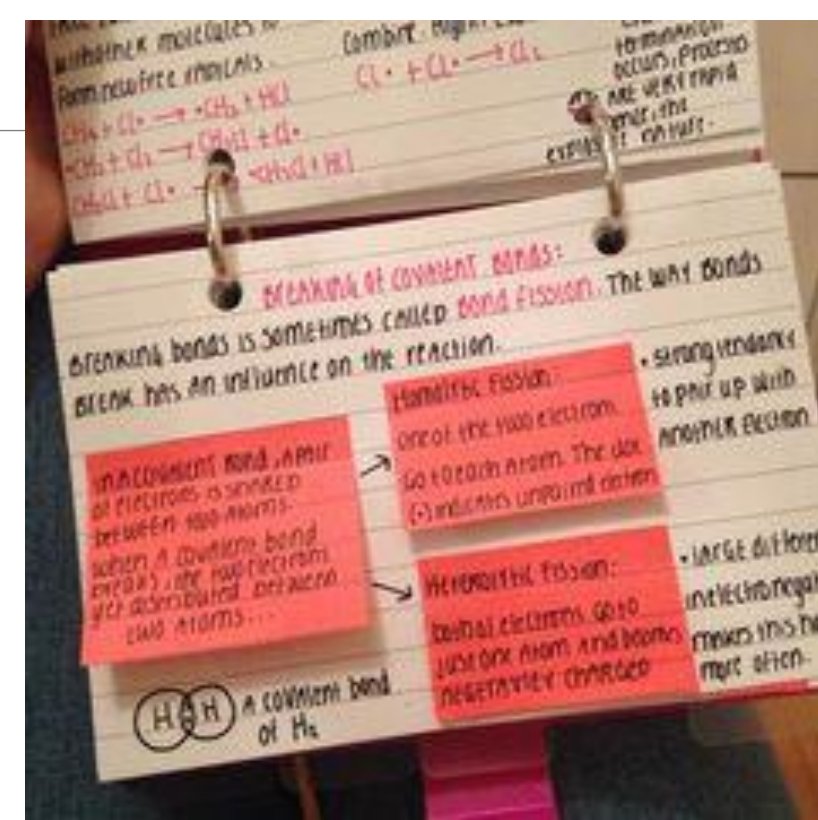 with other molecules to
form new free radicals.
CH4 + Cl• → •CH3 + HCl
•CH3 + Cl2 → CH3Cl + Cl•
CH3Cl + Cl• → •CH2Cl + HCl
combine.
Cl• + Cl• → Cl2
termination
occurs, processes
are very rapid
hence, the
explosive nature.
Breaking of covalent bonds:
Breaking bonds is sometimes called bond fission. The way bonds
break has an influence on the reaction.
In a covalent bond, a pair
of electrons is shared
between two atoms.
When a covalent bond
breaks, the two electrons
get distributed between
two atoms...
Homolytic Fission:
one of the two electrons
go to each atom. The dot
(•) indicates unpaired electron
• strong tendancy
to pair up with
another electron
Heterolytic Fission:
both electrons go to
just one atom and becoms
negatively charged
• large differen
in electronegat
makes this ha
more often.
H H
A covalent bond
of H2